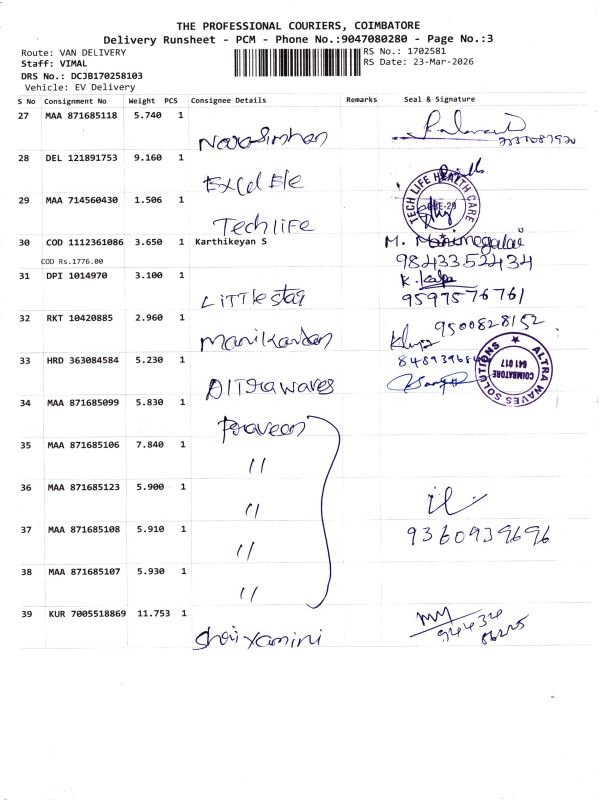 THE PROFESSIONAL COURIERS, COIMBATORE
Delivery Runsheet - PCM - Phone No.:9047080280 - Page No.:3
Route: VAN DELIVERY
Staff: VIMAL
DRS No.: DCJB170258103
Vehicle: EV Delivery
RS No.: 1702581
RS Date: 23-Mar-2026
S No Consignment No Weight PCS Consignee Details Remarks Seal & Signature
27 MAA 871685118 5.740 1 Narasimhan
28 DEL 121891753 9.160 1
29 MAA 714560430 1.506 1 Techlife
TECH LIFE HEALTH CARE
30 COD 1112361086 3.650 1 Karthikeyan S
COD Rs.1776.00
M.
9843352434
31 DPI 1014970 3.100 1 Little star
9597576761
32 RKT 10420885 2.960 1 Manikandan
9500828152
33 HRD 363084584 5.230 1 Altrawaves
ALTRA WAVES SOLUTIONS
COIMBATORE
641 017
34 MAA 871685099 5.830 1 Praveen
35 MAA 871685106 7.840 1 "
36 MAA 871685123 5.900 1 "
37 MAA 871685108 5.910 1 "
9360939696
38 MAA 871685107 5.930 1 "
39 KUR 7005518869 11.753 1 Shri Yamini